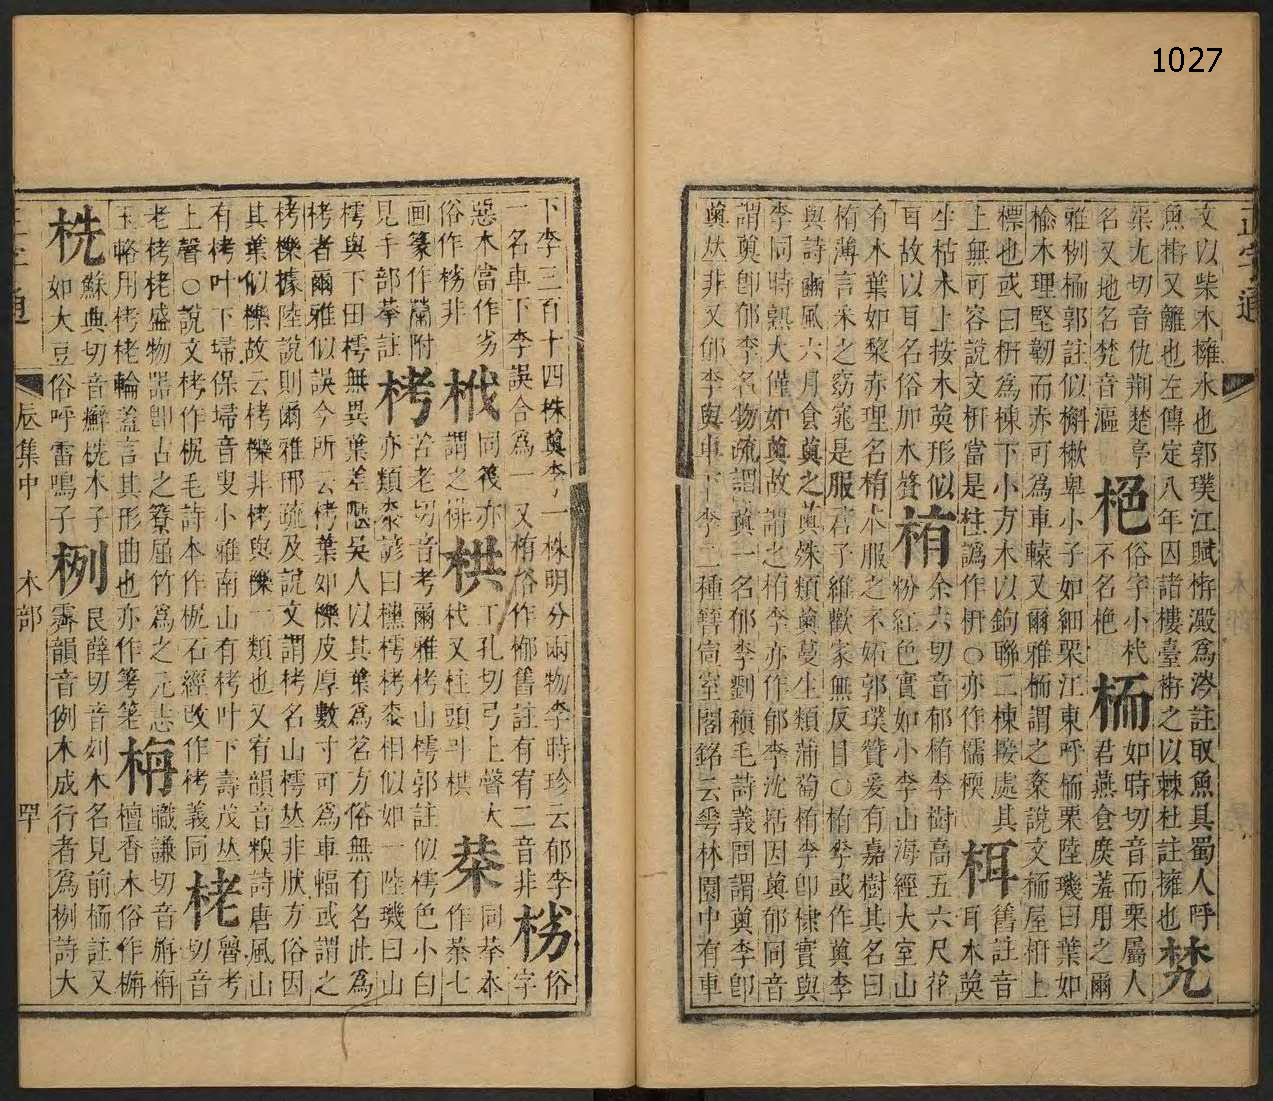 1027
正字通
文以柴木擁水也郭璞江賦栫澱爲涔註取魚具蜀人呼
魚栫又離也左傳定八年囚諸樓臺栫之以棘杜註擁也 梵
渠尤切音仇荆楚亭
名又地名梵音漚 栬 俗字小栰
不名栬 栭 如時切音而栗屬人
君燕食庶羞用之爾
雅栵栭郭註似槲樕卑小子如細栗江東呼栭栗陸璣曰葉如
楡木理堅韌而赤可爲車轅又爾雅栭謂之楶說文栭屋枅上
標也或曰枅爲棟下小方木以鉤聯二棟聚處其
上無可容說文枅當是柱譌作枅〇亦作檽檽 栮 舊註音
耳木䓇
生枯木上按木䓇形似
耳故以耳名俗加木贅 栯 余六切音郁栯李樹高五六尺花
粉紅色實如小李山海經大室山
有木葉如黎赤理名栯木服之不妬郭璞贊爰有嘉樹其名曰
栯薄言采之窈窕是服君子維歡家無反目〇栯李或作薁李
與詩豳風六月食薁之薁殊類薁蔓生類蒲萄栯李卽棣實與
李同時熟大僅如薁故謂之栯李亦作郁李沈括因薁郁同音
謂薁卽郁李名物疏謂薁一名郁李劉稹毛詩義問謂薁李卽
薁𠀤非又郁李與車下李二種晉宮室閣銘云華林園中有車
下李三百十四株薁李一株明分兩物李時珍云郁李
一名車下李誤合爲一又栯俗作㮋舊註有宥二音非 枴 俗字
惡木當作劣
俗作枴非 栰 同筏亦
謂之𥱼 栱 工孔切弓上聲大
杙又柱頭斗栱 菜 同拲本
作桊七
畫篆作𦶎附
見手部拲註 栲 苦老切音考爾雅栲山樗郭註似樗色小白
亦類漆諺曰櫄樗栲漆相似如一陸璣曰山
樗與下田樗無異葉差狹吳人以其葉爲茗方俗無有名此爲
栲者爾雅似誤今所云栲葉如櫟皮厚數寸可爲車輻或謂之
栲櫟據陸說則爾雅邢疏及說文謂栲名山樗𠀤非狀方俗因
其葉似櫟故云栲櫟非栲與櫟一類也又宥韻音糗詩唐風山
有栲叶下埽保埽音叟小雅南山有栲叶下壽茂𠀤
上聲〇說文栲作㭒毛詩本作㭒石經改作栲義同 栳 魯考
切音
老栲栳盛物器卽古之䉛屈竹爲之元志
玉輅用栲栳輪蓋言其形曲也亦作䇢荖 栴 職謙切音旃栴
檀香木俗作㮵
㭠 蘇典切音癬㭠木子
如大豆俗呼雷鳴子 栵 良薛切音列木名見前栭註又
霽韻音例木成行者爲栵詩大
正字通
辰集中
木部
四十